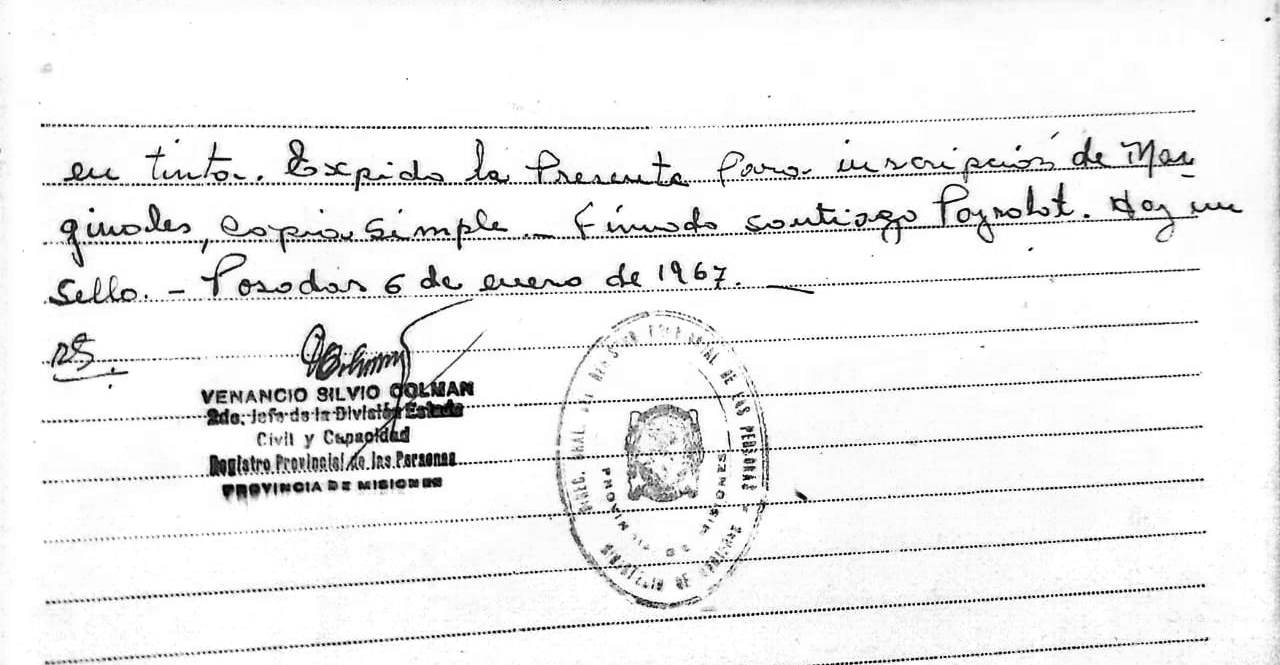 en tinta. Expido la Presente Para inscripción de Mar-
ginales, copia simple._ Firmado Santiago Payrolot. Hay un
sello. - Posadas 6 de enero de 1967. _
RS.
VENANCIO SILVIO COLMAN
2do. Jefe de la División Estado
Civil y Capacidad
Registro Provincial de las Personas
PROVINCIA DE MISIONES
DIREC. GRAL. DEL REGISTRO PROVINCIAL DE LAS PERSONAS
PROVINCIA DE MISIONES